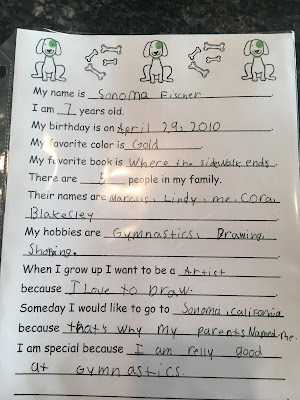 My name is Sonoma Fischer
I am 7 years old.
My birthday is on April 29, 2010
My favorite color is Gold
My favorite book is Where the sidewalk ends.
There are 5 people in my family.
Their names are Marcus, Lindy, me, Cora,
Blakesley
My hobbies are Gymnastics, Drawing,
Shoping.
When I grow up I want to be a Artist
because I Love to Draw.
Someday I would like to go to Sonoma, califania
because that's why my parents Named me.
I am special because I am relly good
at gymnastics.